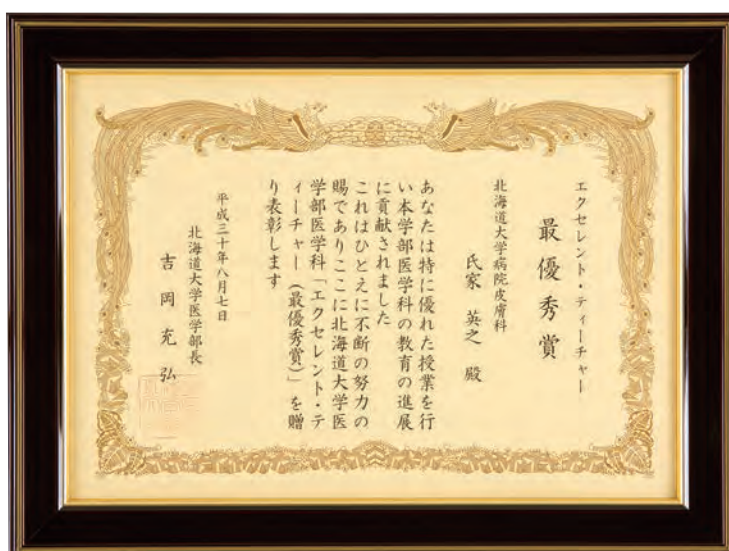 エクセレント・ティーチャー
最優秀賞
北海道大学病院皮膚科
氏家 英之 殿
あなたは特に優れた授業を行
い本学部医学科の教育の進展
に貢献されました
これはひとえに不断の努力の
賜でありここに北海道大学医
学部医学科「エクセレント・テ
ィーチャー（最優秀賞）」を贈
り表彰します
平成三十年八月七日
北海道大学医学部長
吉岡充弘